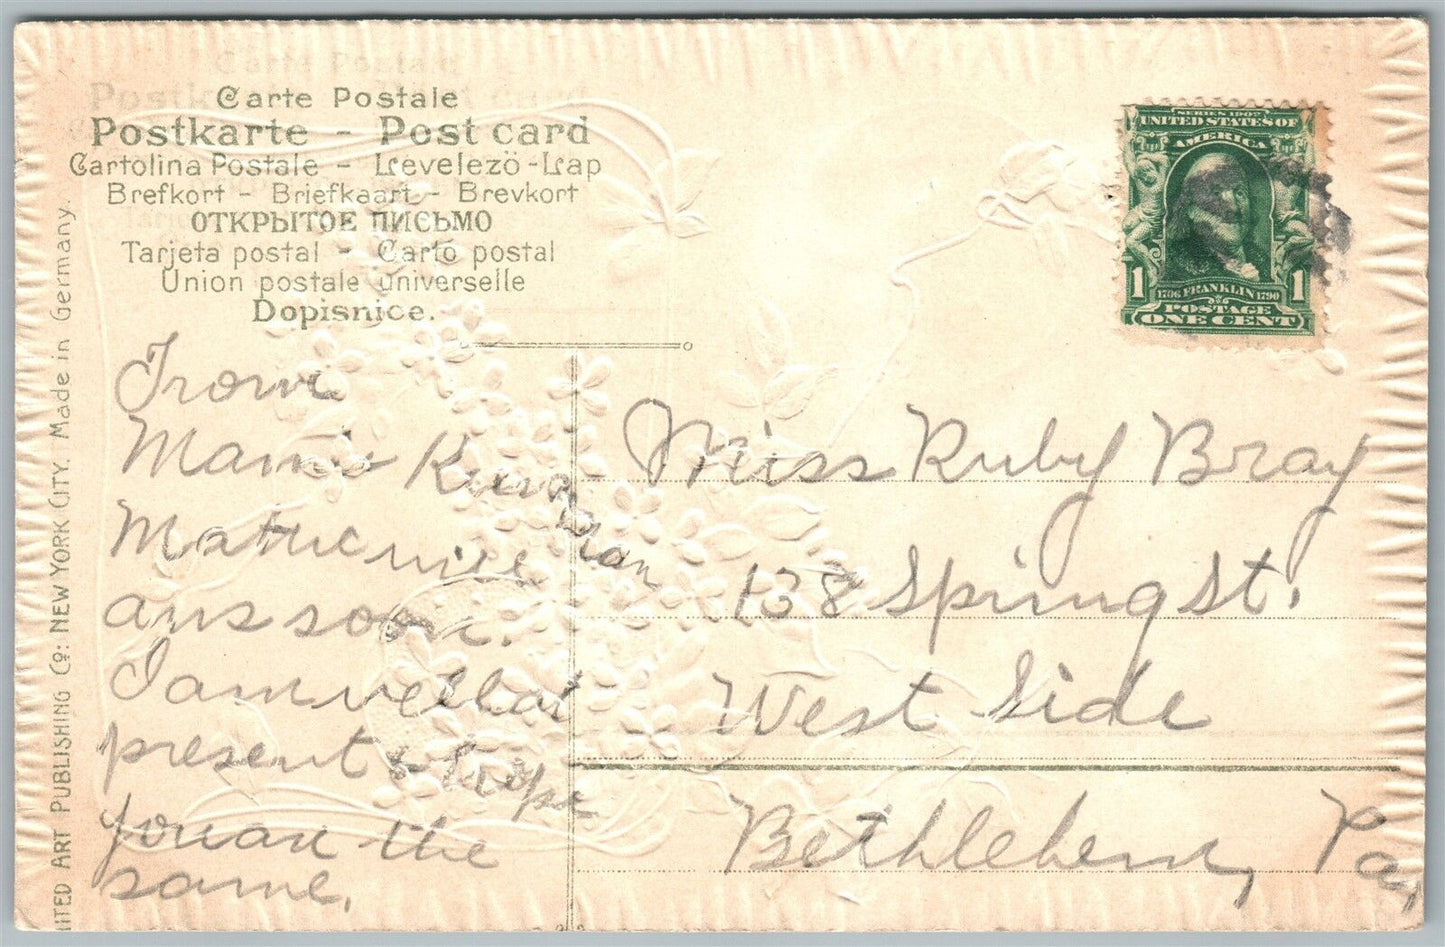 Carte Postale
Postkarte - Post card
Cartolina Postale - Levelezö-Lap
Brefkort - Briefkaart - Brevkort
ОТКРЫТОЕ ПИСЬМО
Tarjeta postal - Carto postal
Union postale universelle
Dopisnice.
ITED ART PUBLISHING Co: NEW YORK CITY. Made in Germany.
SERIES 1902
UNITED STATES OF
AMERICA
1 1706 FRANKLIN 1790 1
POSTAGE
ONE CENT
From
ans soon.
I am well at
present & hope
you are the
same.
Miss Ruby Bray
138 Spring St.
West Side
Bethlehem, Pa,